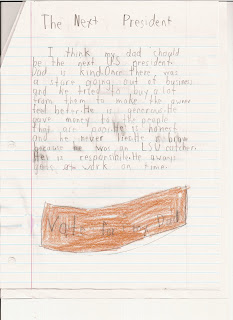 The Next President
I think my dad should
be the next US president.
Dad is kind. Once there was
a store going out of business
and he tried to buy a lot
from them to make the owner
feel better. He is generous. He
gave money to the people
that are poor. He is honest
and he never
because he was an LSU catcher.
He is responsible. He always
work on time.
Vote for my Dad!